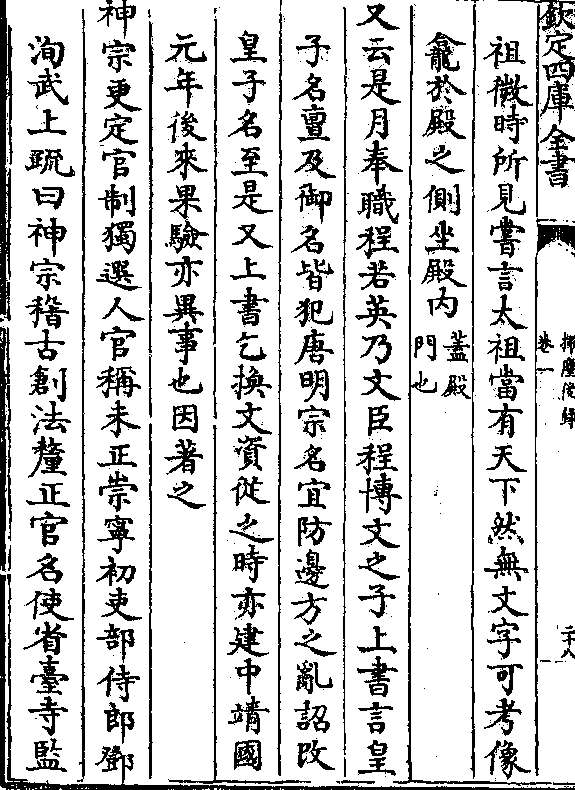 欽定四庫全書
揮麈後錄
卷一
二十八
祖微時所見嘗言太祖當有天下然無文字可考像
龕於殿之側坐殿内蓋殿
門也
又云是月奉職程若英乃文臣程博文之子上書言皇
子名亶及御名皆犯唐明宗名宜防邊方之亂詔改
皇子名至是又上書乞換文資從之時亦建中靖國
元年後來果驗亦異事也因著之
神宗更定官制獨選人官稱未正崇寧初吏部侍郎鄧
洵武上疏曰神宗稽古創法釐正官名使省臺寺監